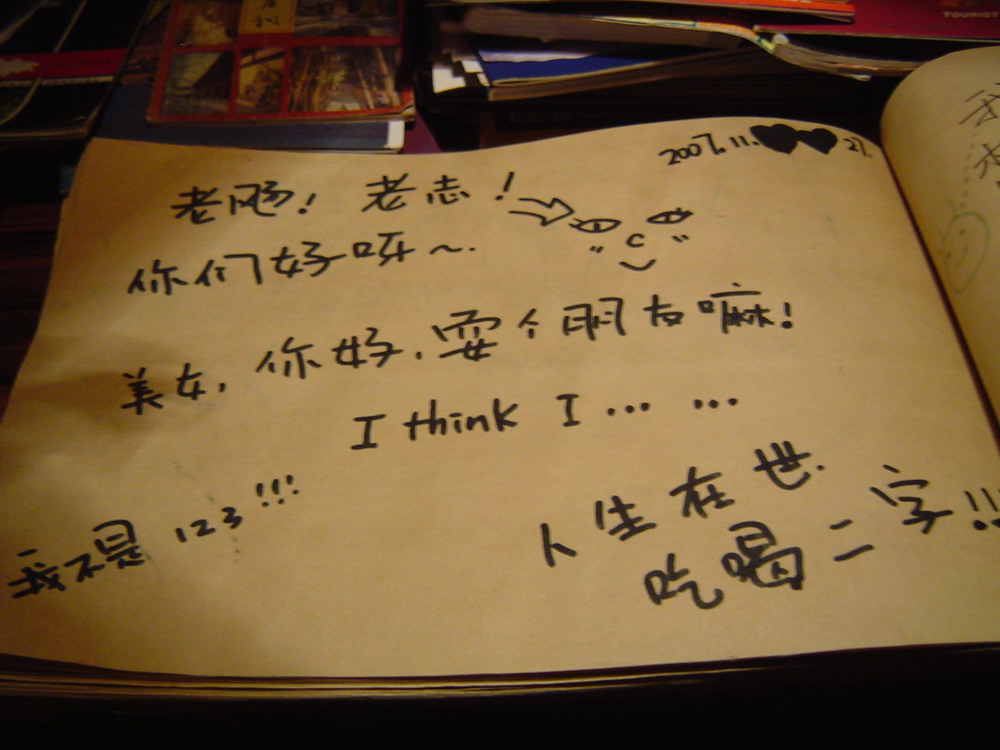 TOURIST
2007.11. 27.
老肠! 老志!
你们好呀~.
美女,你好,耍个朋友嘛!
I think I ... ...
我不是 123!!!
人生在世.
吃喝二字!!
我